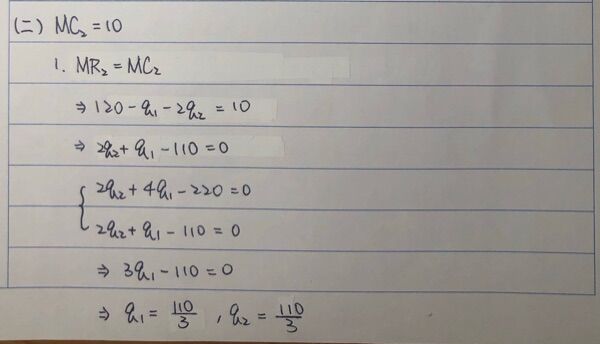 (二) MC₂ = 10
1. MR₂ = MC₂
⇒ 120 - q₁ - 2q₂ = 10
⇒ 2q₂ + q₁ - 110 = 0
{ 2q₂ + 4q₁ - 220 = 0
2q₂ + q₁ - 110 = 0
⇒ 3q₁ - 110 = 0
⇒ q₁ = 110/3 , q₂ = 110/3